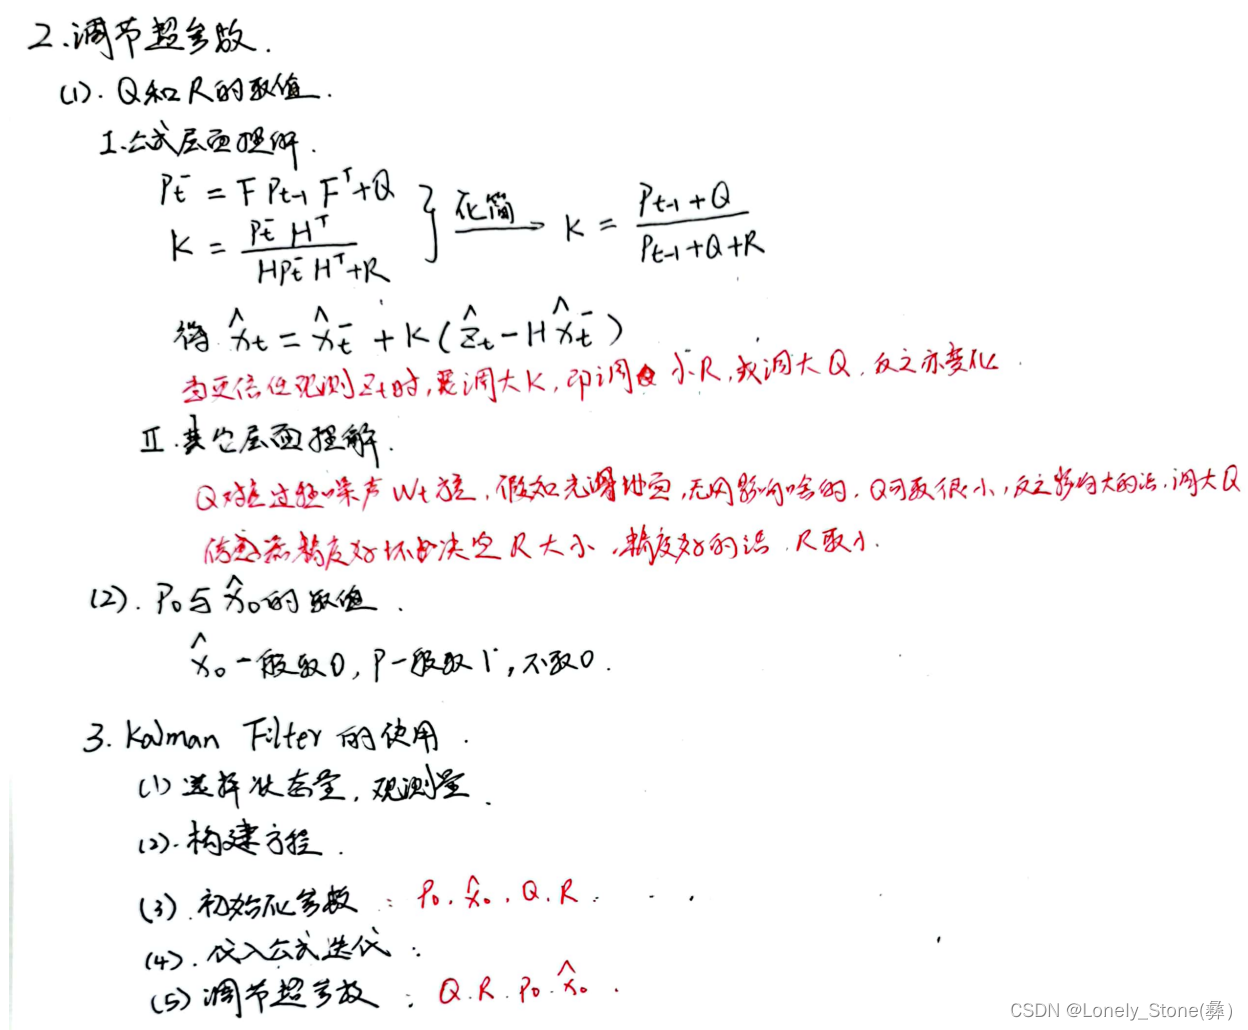 2.调节超参数.
(1). Q和R的取值.
I.公式层面理解.
Pt⁻ = F Pt-1 Fᵀ+Q
K = Pt⁻ Hᵀ / HPt⁻Hᵀ+R
} 化简 → K = Pt-1+Q / Pt-1+Q+R
得 x̂t = x̂t⁻ + K(ẑt - Hx̂t⁻)
当更信任观测Zt时,要调大K,即调小R,或调大Q,反之亦变化.
II.其它层面理解.
Q对应过程噪声Wt方差,假如光滑地面,无风影响啥的,Q可取很小,反之影响大的话,调大Q
传感器精度好坏决定R大小,精度好的话,R取小.
(2). P0与x̂0的取值.
x̂0一般取0,P一般取1,不取0.
3. Kalman Filter的使用.
(1)选择状态量,观测量.
(2).构建方程.
(3).初始化参数:P0.x̂0.Q.R.
(4).代入公式迭代:
(5)调节超参数:Q.R.P0.x̂0.
CSDN @Lonely_Stone(彝)